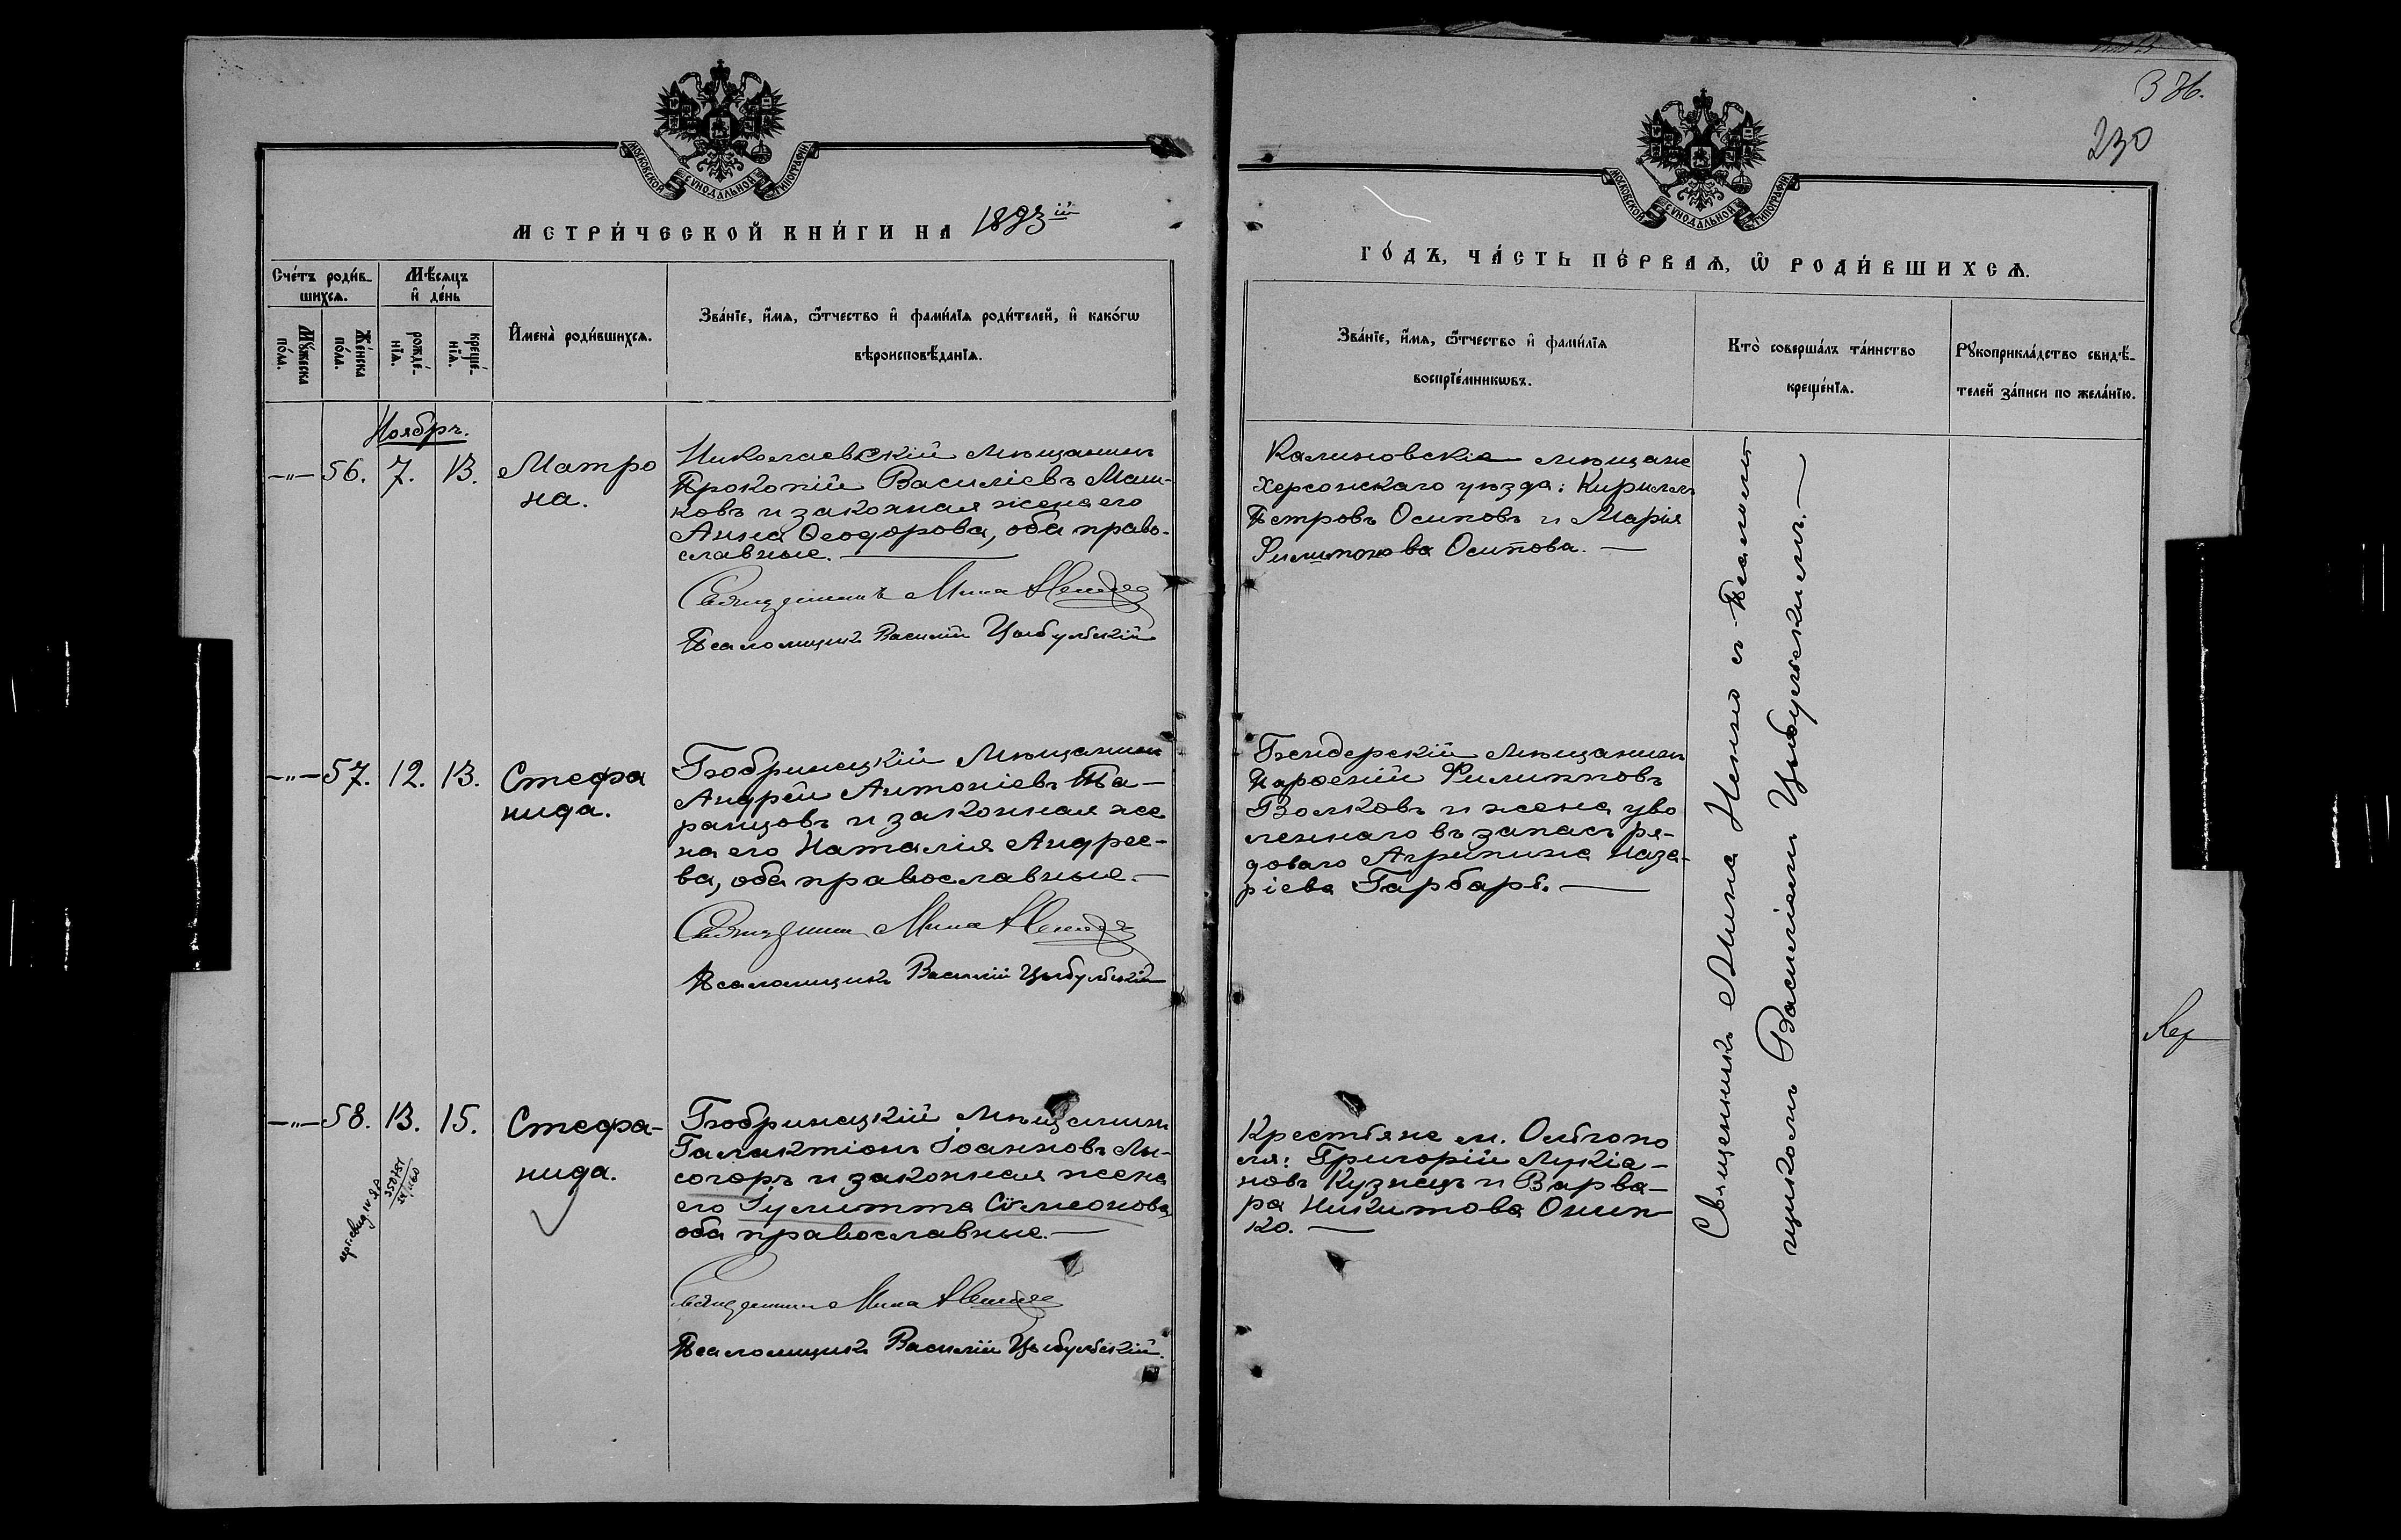 386.
230
МОСКОВСКОЙ СѴНОДАЛЬНОЙ ТИПОГРАФІИ
МЕТРИ́ЧЕСКОЙ КНИ́ГИ НА 1893ій
Сче́тъ роди́в-
шихсѧ.
Мѣ́сѧцъ
и҆ де́нь
Мꙋ́жеска
по́ла.
Же́нска
по́ла.
рожде́-
нїѧ.
креще́-
нїѧ.
И҆мена̀ роди́вшихсѧ.
Зва́нїе, и҆́мѧ, ѻ҆́тчество и҆ фами́лїѧ роди́телей, и҆ како́гѡ
вѣроисповѣ́данїѧ.
Ноябрь.
—"— 56. 7. 13. Матро
на.
Николаевскій мѣщанинъ
Прокопій Василіевъ Маш-
ковъ и законная жена его
Анна Ѳеодорова, оба право-
славные.
Священникъ Мина
Псаломщикъ Василій Цыбульскій
—"— 57. 12. 13. Стефа
нида.
Бобринецкій мѣщанинъ
Андрей Антоніевъ Та-
ранцовъ и законная же
на его Наталія Андрее-
ва, оба православные.—
Священникъ Мина
Псаломщикъ Василій Цыбульскій
—"— 58. 13. 15. Стефа-
нида.
Бобринецкій мѣщанинъ
Галактіонъ Іоанновъ Лы-
согоръ и законная жена
его Іулитта Сѵмеонова
оба православные.—
Священникъ Мина
Псаломщикъ Василій Цыбульскій.
МОСКОВСКОЙ СѴНОДАЛЬНОЙ ТИПОГРАФІИ
ГО́ДЪ, ЧА́СТЬ ПЕ́РВАѦ, Ѡ҆ РОДИ́ВШИХСѦ.
Зва́нїе, и҆́мѧ, ѻ҆́тчество и҆ фами́лїѧ
воспрїе́мникѡвъ.
Кто̀ соверша́лъ та́инство
креще́нїѧ.
Рꙋкоприкла́дство свидѣ́-
телей за́писи по жела́нїю.
Калиновскіе мѣщане
Херсонскаго уѣзда: Кириллъ
Петровъ Осиповъ и Марія
Филиппова Осипова.—
Бендерскій мѣщанинъ
Парѳеній Филипповъ
Волковъ и жена уво
леннаго въ запасъ ря-
доваго Агрипина Наза-
ріева Гарбарь.—
Крестьяне м. Ольгопо
ля: Григорій Лукіа-
новъ Кузнецъ и Варва-
ра Никитова Онип-
ко.—
Священникъ Мина Ненно съ Псалом
щикомъ Василіемъ Цыбульскимъ.—